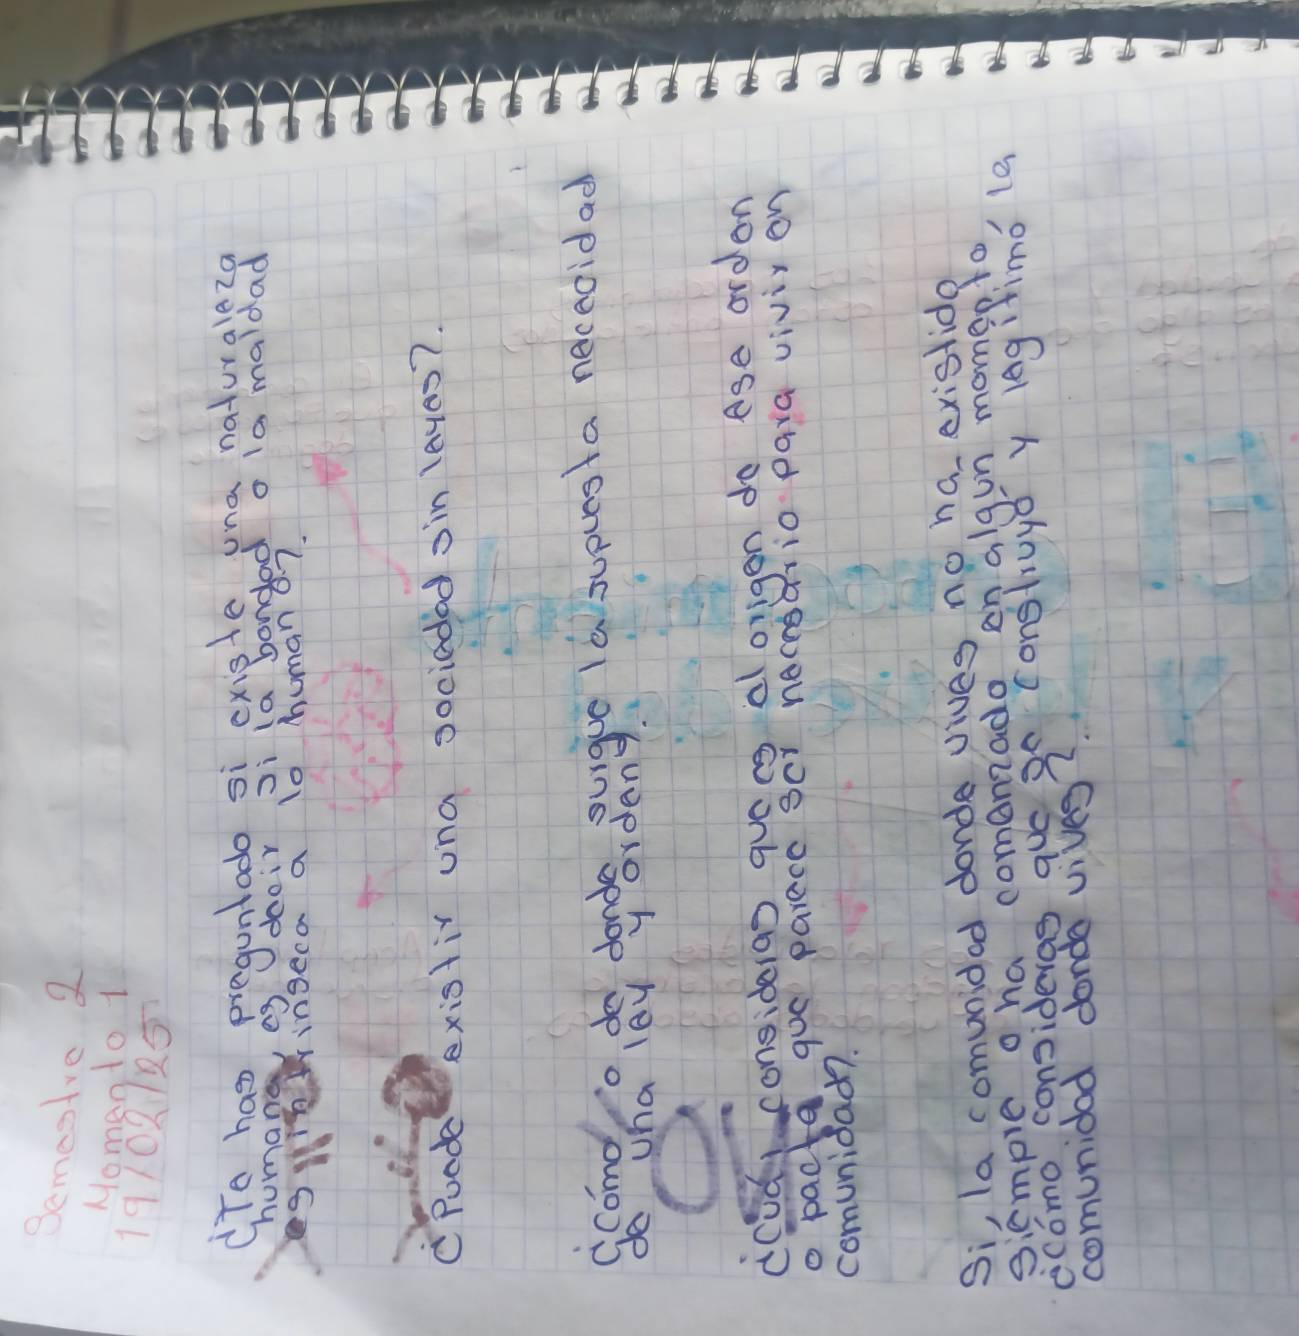 Semestre 2
Momento 1
19/02/25
¿Te has preguntado si existe una naturaleza
humana, es decir si la bondad o la maldad
es intrinseca a lo humano?.
¿Puede existir una sociedad sin leyes?.
¿Cómo o de donde surgue la supuesta necesidad
de una ley y orden?.
OK
¿Cuál consideras que es al origen de ese orden
o pacto que parece ser necesario para vivir en
comunidad?.
Si, la comunidad donde vives no ha existido
siempre o ha comenzado en algun momento
¿cómo consideras que se construyó y legitimó la
comunidad donde vives?.